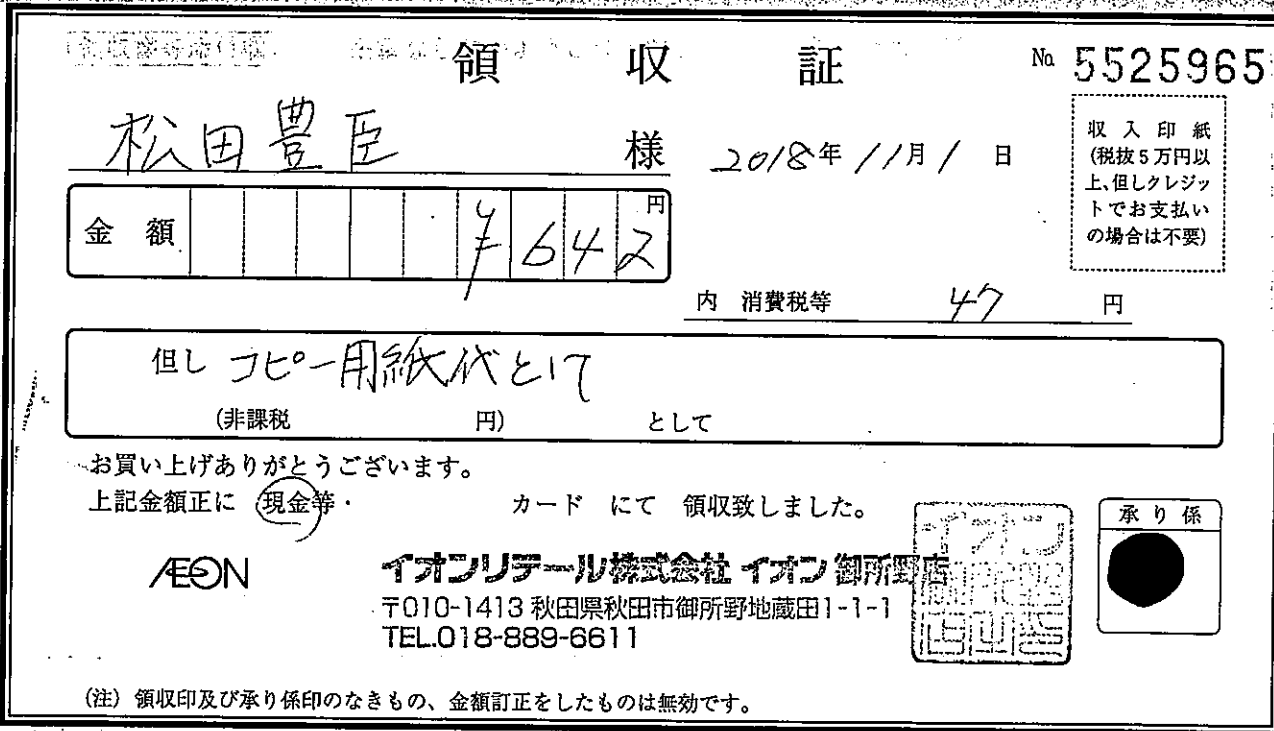 領収証 No. 5525965
松田豊臣 様 2018年11月1日
収入印紙
(税抜5万円以
上、但しクレジッ
トでお支払い
の場合は不要)
金額 ¥642円
内 消費税等 47円
但し コピー用紙代として
(非課税 円) として
お買い上げありがとうございます。
上記金額正に 現金等・ カード にて 領収致しました。
承り係
AEON
イオンリテール株式会社 イオン御所野店
〒010-1413 秋田県秋田市御所野地蔵田1-1-1
TEL.018-889-6611
(注) 領収印及び承り係印のなきもの、金額訂正をしたものは無効です。